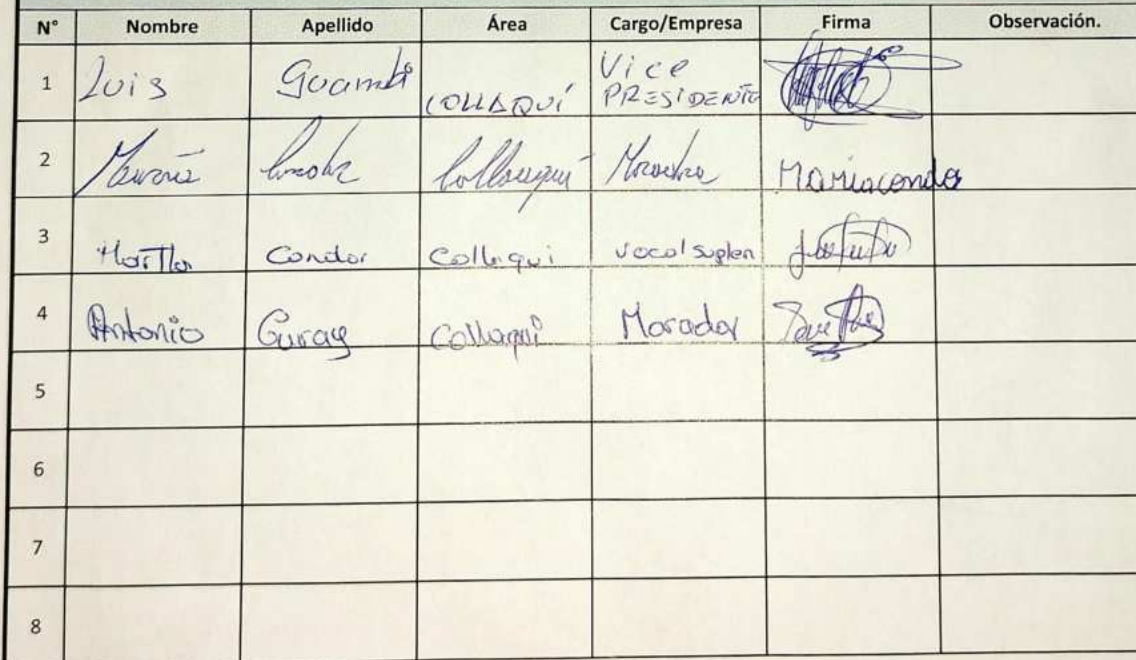 N° Nombre Apellido Área Cargo/Empresa Firma Observación.
1 Luis Guambi COLLAQUÍ Vice PRESIDENTE
2 Collaquí Mariacondor
3 Martha Condor Collaqui Vocal suplen
4 Antonio Guray Collaqui Morador
5
6
7
8